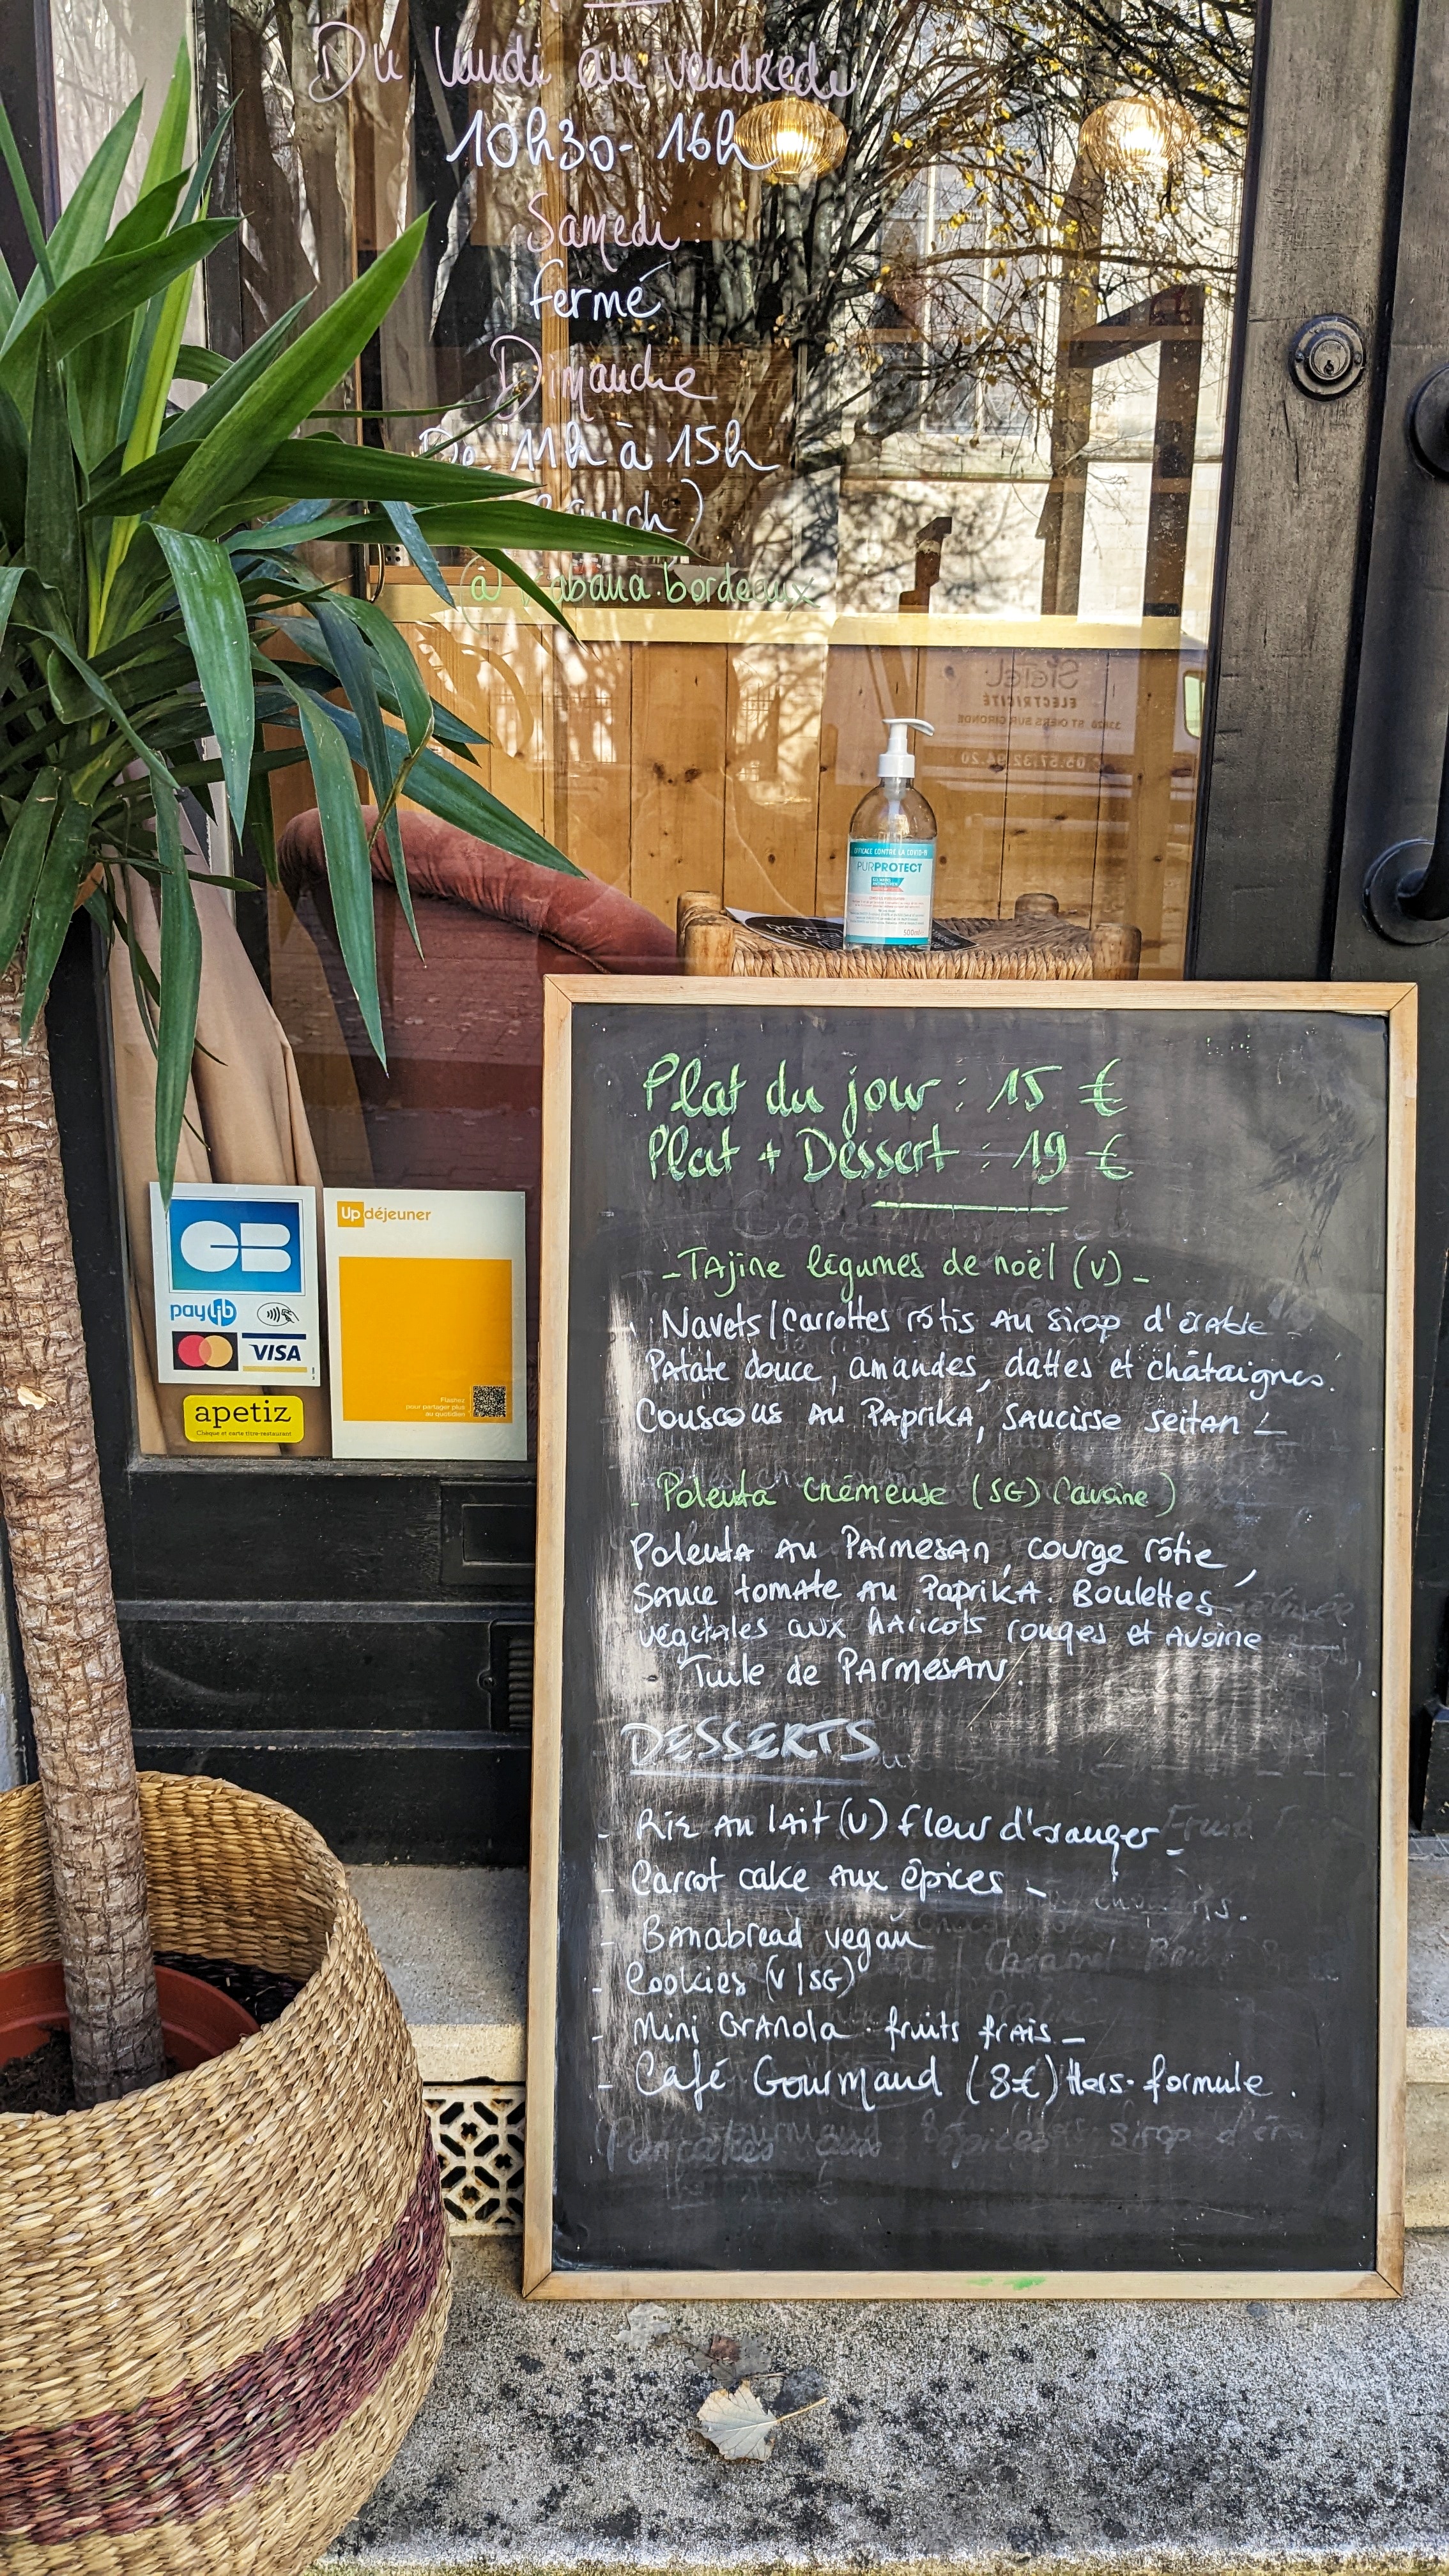 Du lundi au vendredi
10h30-16h
Samedi
fermé
Dimanche
De 11h à 15h
Brunch)
@kabana.bordeaux
SIETEL
ELECTRICITÉ
05.57.32.94.20
EFFICACE CONTRE LA COVID-19
PURPROTECT
500ml
CB
paylib
VISA
apetiz
Chèque et carte titre-restaurant
Up déjeuner
Flashez
pour partager plus
au quotidien
Plat du jour : 15 €
Plat + Dessert : 19 €
-Tajine légumes de noël (V)-
Navets/Carrottes rôtis au sirop d'érable -
Patate douce, amandes, dattes et châtaignes.
Couscous au Paprika, saucisse seitan -
- Polenta crémeuse (SG) (avoine)
Polenta au Parmesan, courge rôtie,
sauce tomate au Paprika. Boulettes
végétales aux haricots rouges et avoine
Tuile de Parmesan.
DESSERTS
- Riz au lait (V) fleur d'oranger -
- Carrot cake aux épices -
- Bnabread vegan
- Cookies (V/SG)
- Mini Granola . fruits frais -
- Café Gourmand (8€) Hors-formule.